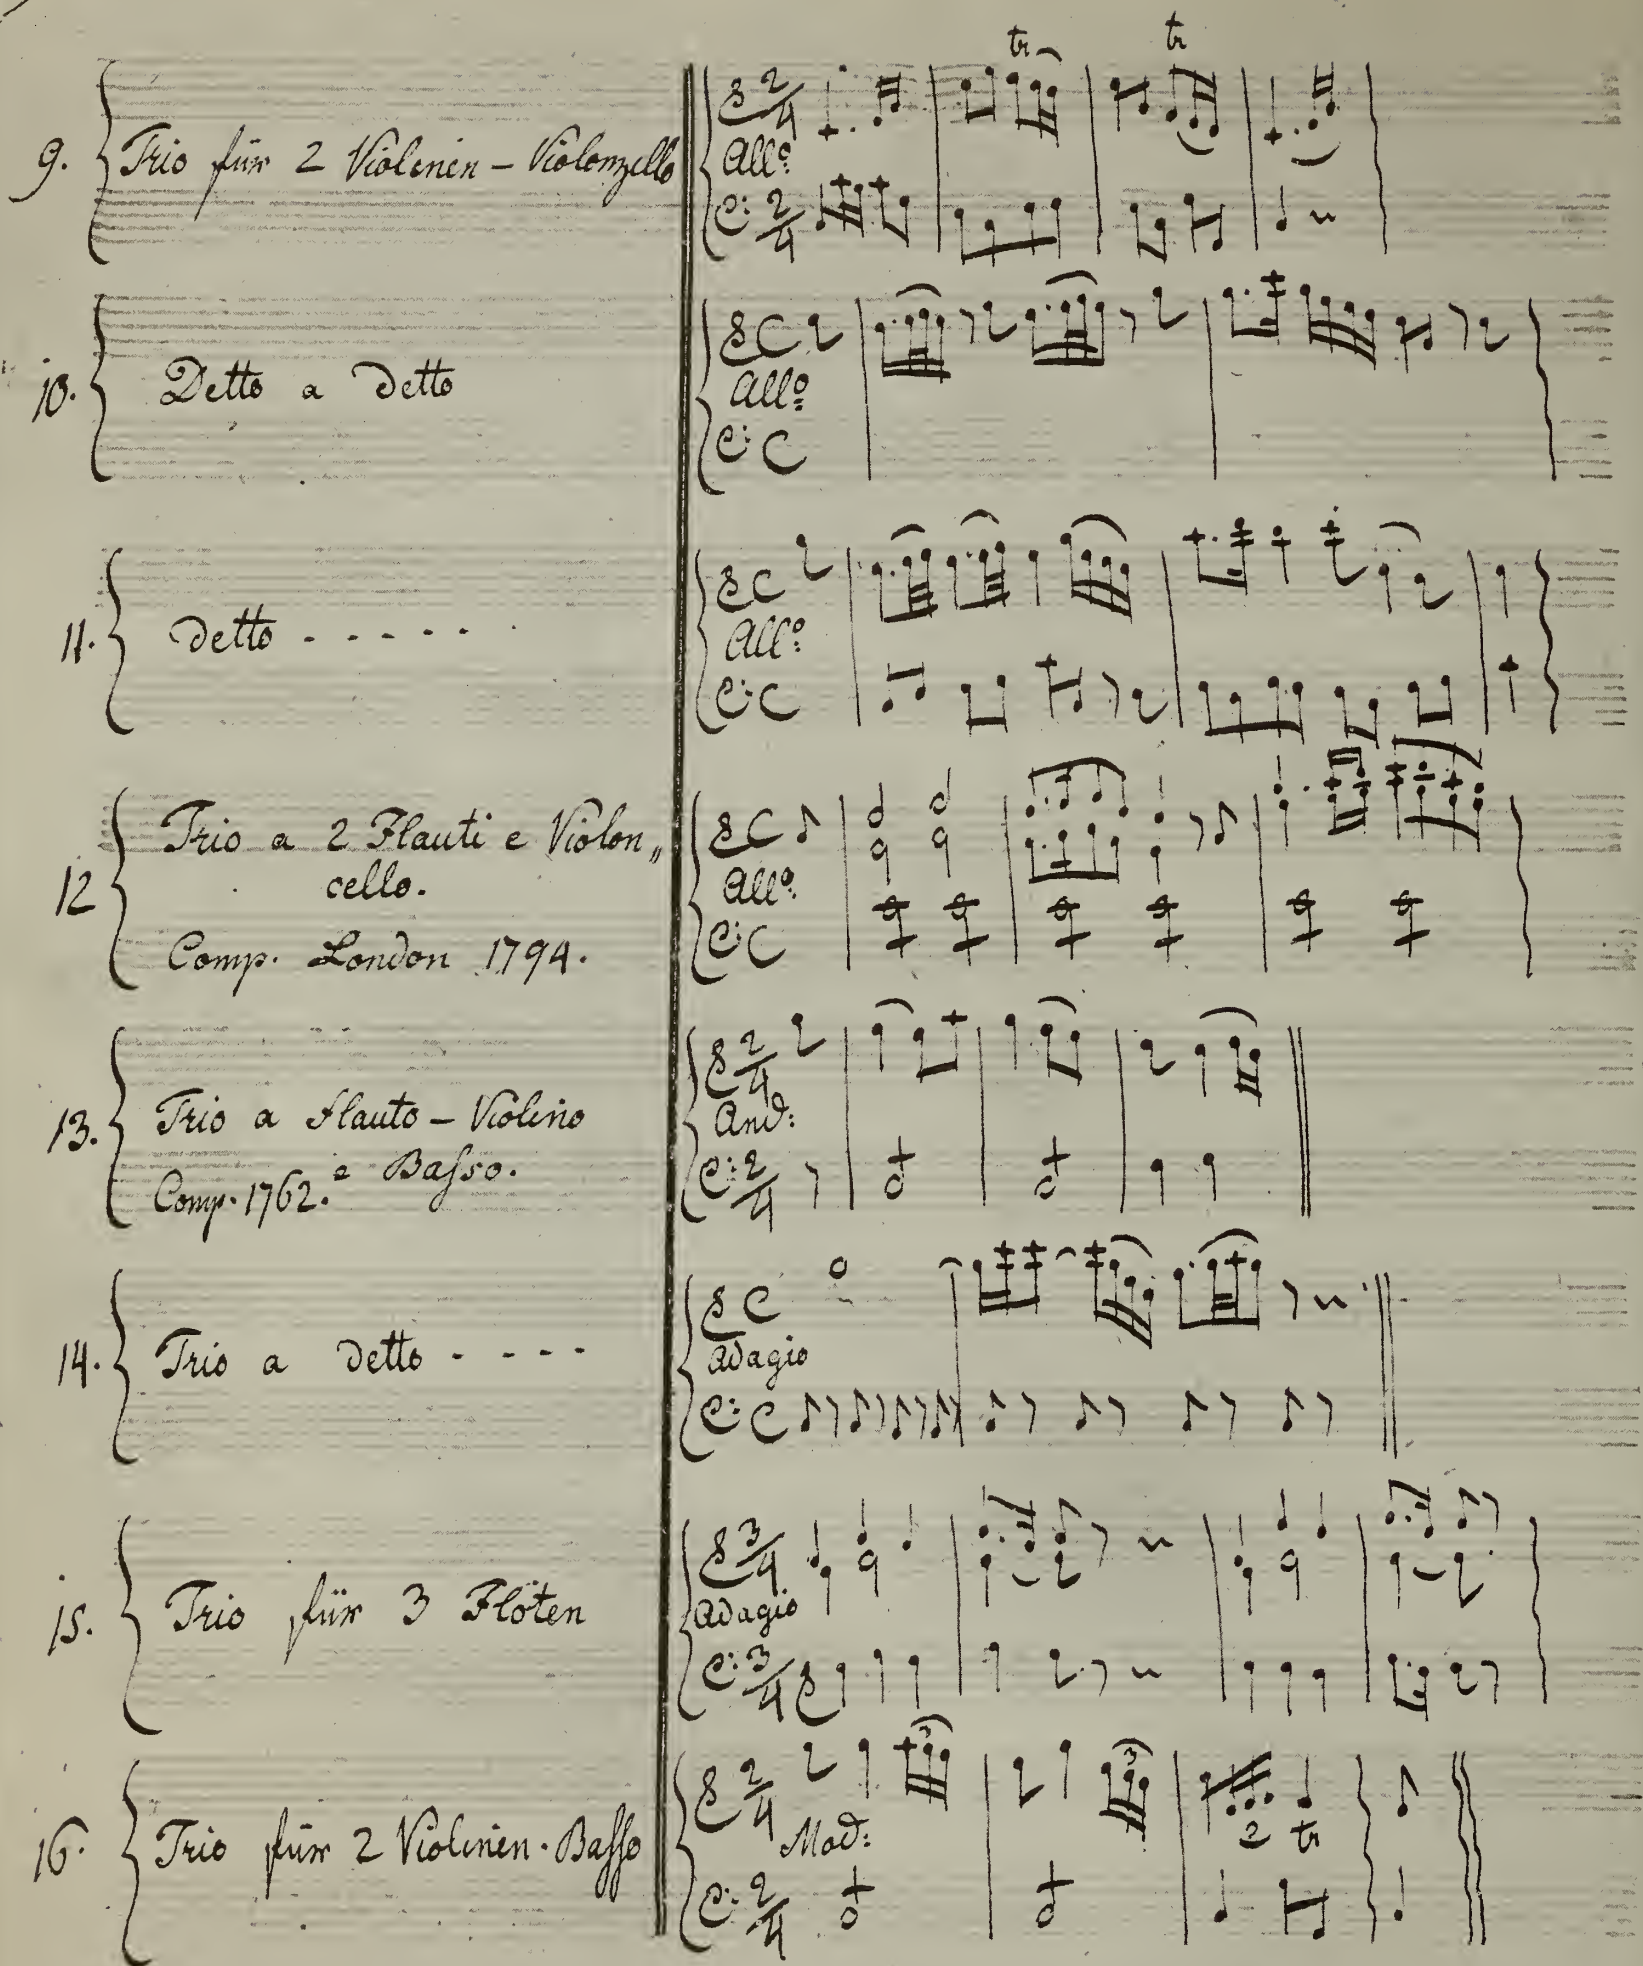 9. Trio für 2 Violinen – Violonzello
tr tr
2/4
Allo:
2/4
10. Detto a detto
C
Allo:
C
11. detto - - - - - -
C
Allo:
C
12 Trio a 2 Flauti e Violon„
cello.
Comp. London 1794.
C
Allo:
C
13. Trio a Flauto – Violino
e Basso.
Comp. 1762.
2/4
And:
2/4
14. Trio a detto - - - -
C
Adagio
C
15. Trio für 3 Flöten
3/4
Adagio
3/4
16. Trio für 2 Violinen. Basso
3 3
2/4
Mod:
2 tr
2/4